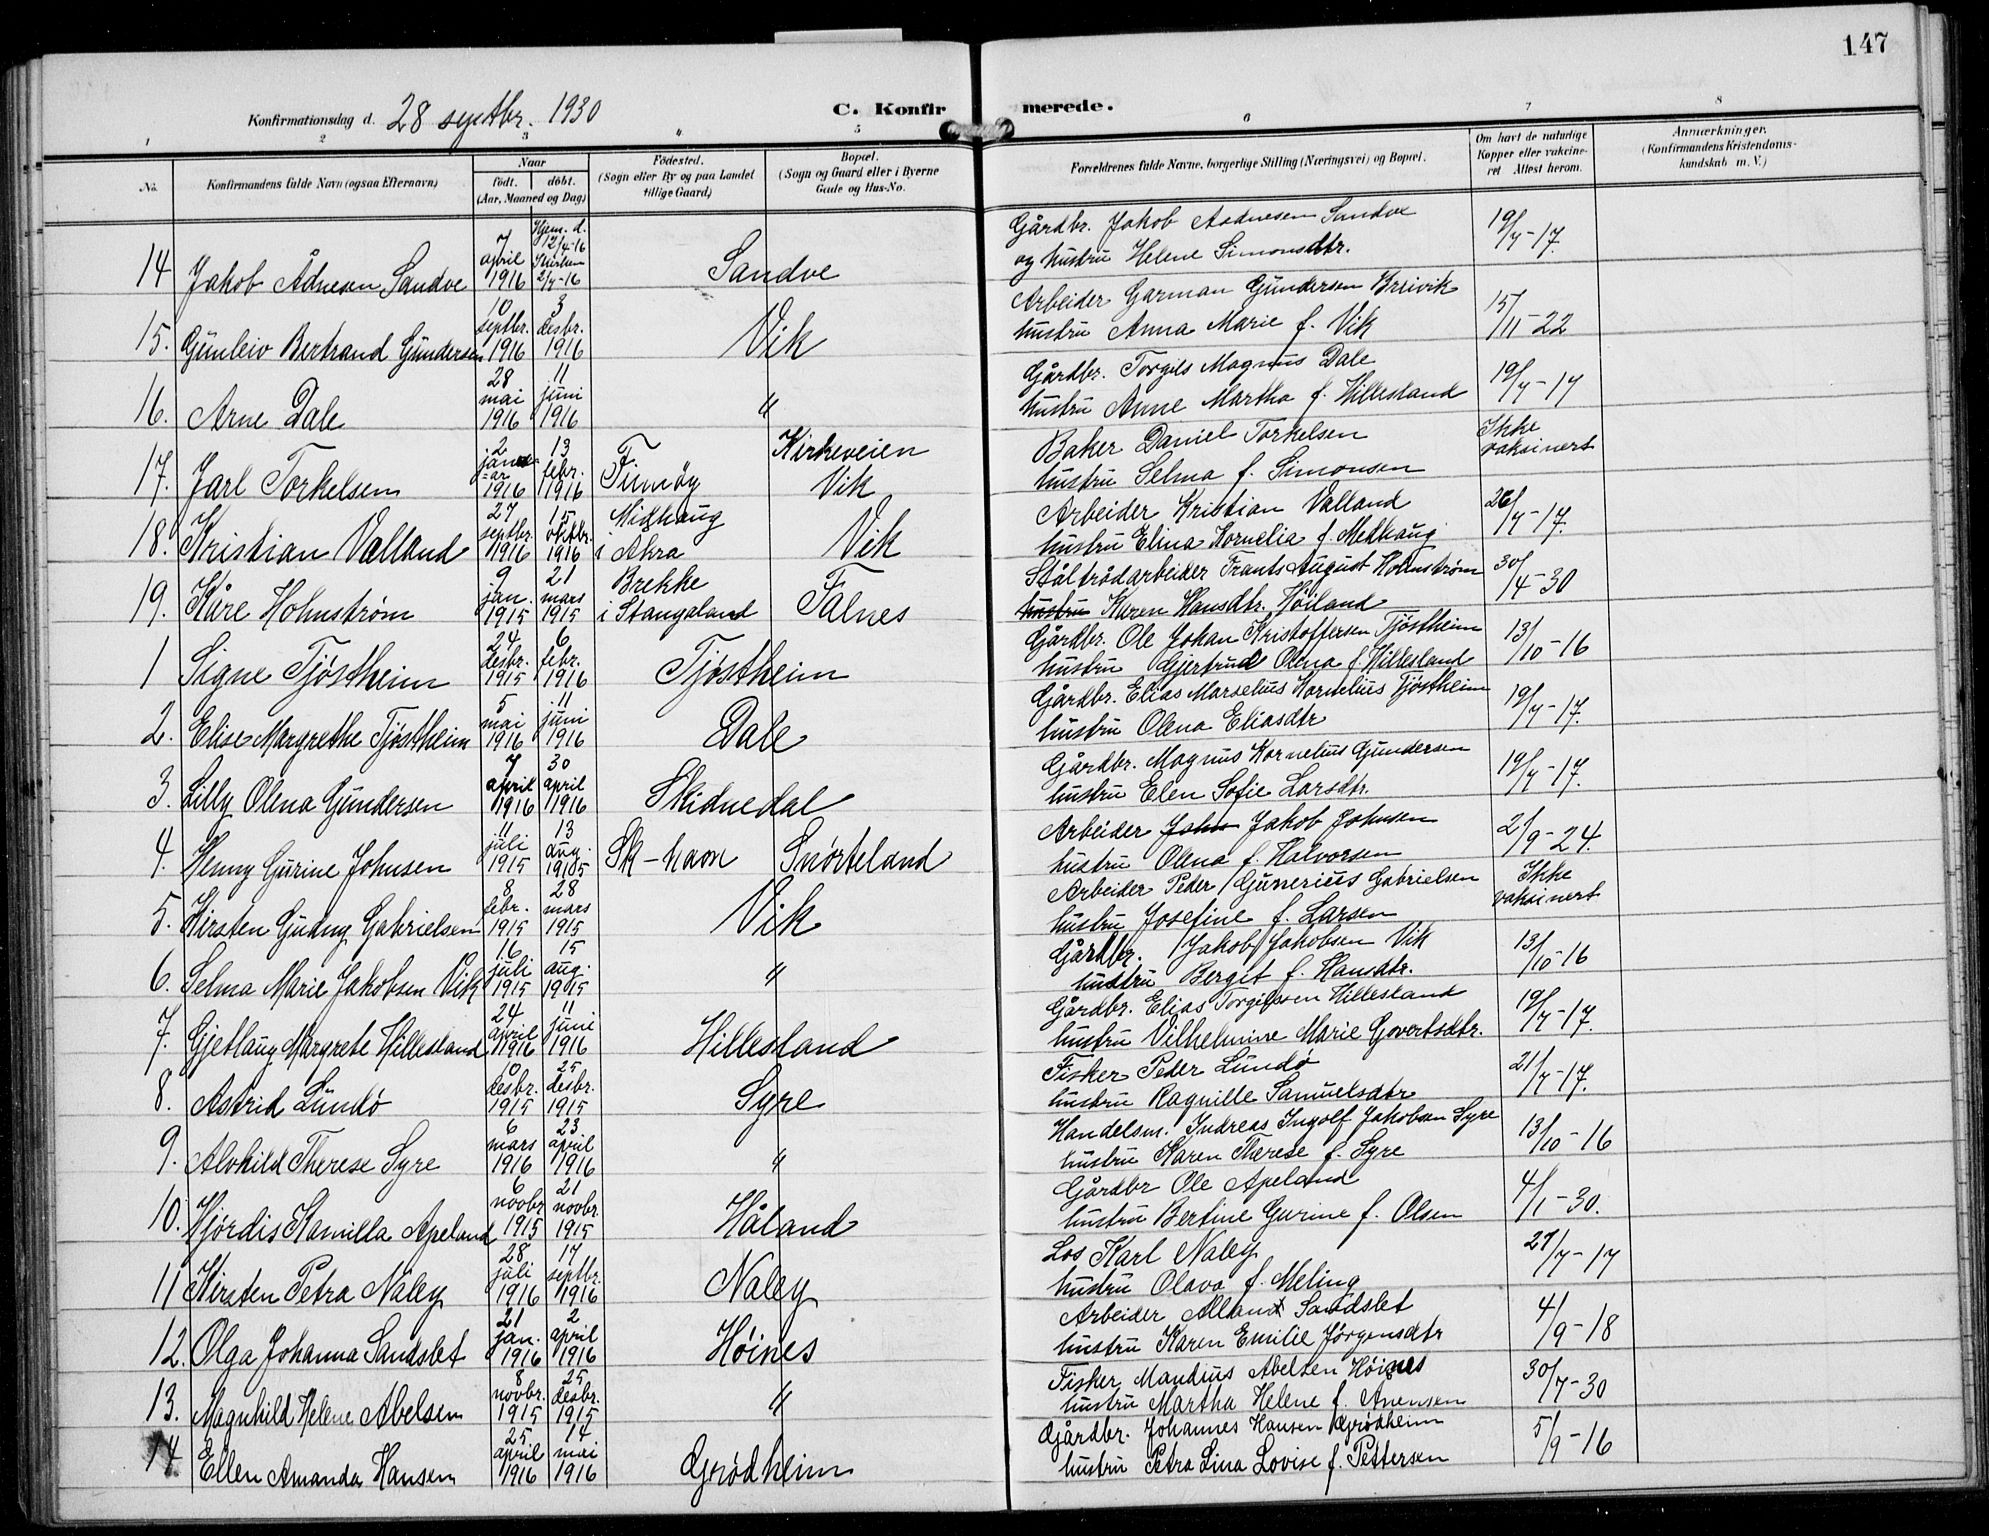 147
Konfirmationsdag d. 28 septbr. 1930
C. Konfirmerede.
1 2 3 4 5 6 7 8
No.
Konfirmandens fulde Navn (ogsaa Efternavn)
Naar
født. døbt.
(Aar, Maaned og Dag)
Fødested.
(Sogn eller By og paa Landet
tillige Gaard)
Bopæl.
(Sogn og Gaard eller i Byerne
Gade og Hus-No.
Forældrenes fulde Navne, borgerlige Stilling (Næringsvei) og Bopæl.
Om havt de naturlige
Kopper eller vakcine-
ret Attest herom.
Anmærkninger.
(Konfirmandens Kristendoms-
kundskab m. V.)
14 Jakob Ådnesen Sandve 7 april 1916 Hjem. d. 12/4-16 Kirken 2/7-16 Sandve
Gårdbr. Jakob Aadnesen Sandve
og hustru Helene Simonsdtr. 19/7-17.
15. Gunleiv Bertrand Gundersen 10 septbr. 1916 3 desbr. 1916 Vik
Arbeider Garman Gundersen Breivik
hustru Anna Marie f. Vik 15/11-22
16. Arne Dale 28 mai 1916 11 juni 1916 "
Gårdbr. Torgils Magnus Dale
hustru Anne Martha f. Hillesland 19/7-17
17. Jarl Torkelsen 2 januar 1916 13 febr. 1916 Finnøy Kirkeveien Vik
Baker Daniel Torkelsen
hustru Selma f. Simonsen Ikke vaksinert
18. Kristian Valland 27 septbr. 1916 15 oktbr. 1916 Midhaug i Akra Vik
Arbeider Kristian Valland
hustru Elina Kornelia f. Medhaug 26/7-17.
19. Kåre Holmstrøm 9 jan. 1915 21 mars 1915 Brekke i Stangaland Falnes
Ståltrådarbeider Frants August Holmstrøm
hustru Karen Hansdtr. Høiland 30/4-30
1 Signe Tjøstheim 24 desbr. 1915 6 febr. 1916 Tjøstheim
Gårdbr. Ole Johan Kristoffersen Tjøstheim
hustru Gjertrud Olena f. Hillesland 13/10-16
2. Elise Margrethe Tjøstheim 5 mai 1916 11 juni 1916 Dale
Gårdbr. Elias Marselius Kornelius Tjøstheim
hustru Olena Eliasdtr 19/7-17.
3. Lilly Olena Gundersen 7 april 1916 30 april 1916 Skidnedal
Gårdbr. Magnus Kornelius Gundersen
hustru Elen Sofie Larsdtr. 19/7-17.
4. Henny Gurine Johnsen 11 juli 1915 13 aug. 1915 Sk-havn Snørteland
Arbeider John Jakob Johnsen
hustru Olena f. Halvorsen 2/9-24.
5. Kirsten Gudny Gabrielsen 8 febr. 1915 28 mars 1915 Vik
Arbeider Peder Gunerius Gabrielsen
hustru Josefine f. Larsen Ikke vaksinert
6. Selma Marie Jakobsen Vik 16 juli 1915 15 aug. 1915 "
Gårdbr. Jakob Jakobsen Vik
hustru Berget f. Hansdtr. 13/10-16
7. Gjetlaug Margrete Hillesland 24 april 1916 11 juni 1916 Hillesland
Gårdbr. Elias Torgilsen Hillesland
hustru Vilhelmine Marie Govertsdtr. 19/7-17.
8. Astrid Lundø desbr. 1915 25 desbr. 1915 Syre
Fisker Peder Lundø
hustru Ragnille Samuelsdtr 21/7-17.
9. Alvhild Therese Syre 6 mars 1916 23 april 1916 "
Handelsm. Indreas Ingolf Jakobsen Syre
hustru Karen Therese f. Syre 13/10-16
10. Hjørdis Kamilla Apeland 6 novbr 1915 21 novbr. 1915 Håland
Gårdbr Ole Apeland
hustru Bertine Gurine f. Olsen 4/1-30.
11 Kirsten Petra Naley 28 juli 1916 17 septbr. 1916 Naley
Los Karl Naley
hustru Olava f. Meling 27/7-17
12. Olga Johanna Sandslet 21 jan. 1916 2 april 1916 Høines
Arbeider Alland Sandslet
hustru Karen Emilie Jørgensdtr 4/9-18
13. Magnhild Helene Abelsen 8 novbr. 1915 25 desbr. 1915 "
Fisker Mandius Abelsen Høines
hustru Martha Helene f. Anensen 30/7-30
14 Ellen Amanda Hansen 25 april 1916 14 mai 1916 Grødheim
Gårdbr. Johannes Hansen Grødheim
hustru Petra Lina Lovise f. Pettersen 5/9-16